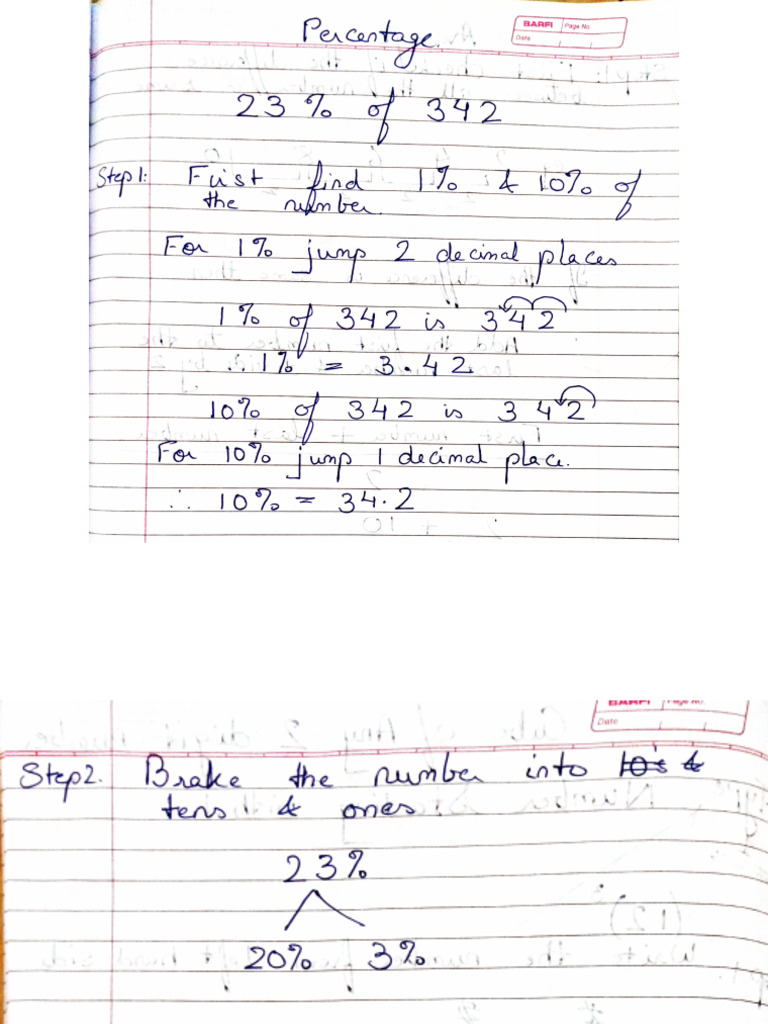 Percentage.
BARFI Page No.
Date
23% of 342
Step 1: First find 1% & 10% of
the number.
For 1% jump 2 decimal places
1% of 342 is 342
∴ 1% = 3.42
10% of 342 is 342
For 10% jump 1 decimal place.
∴ 10% = 34.2
BARFI Page No.
Date
Step2. Brake the number into 10's &
tens & ones
23%
20% 3%